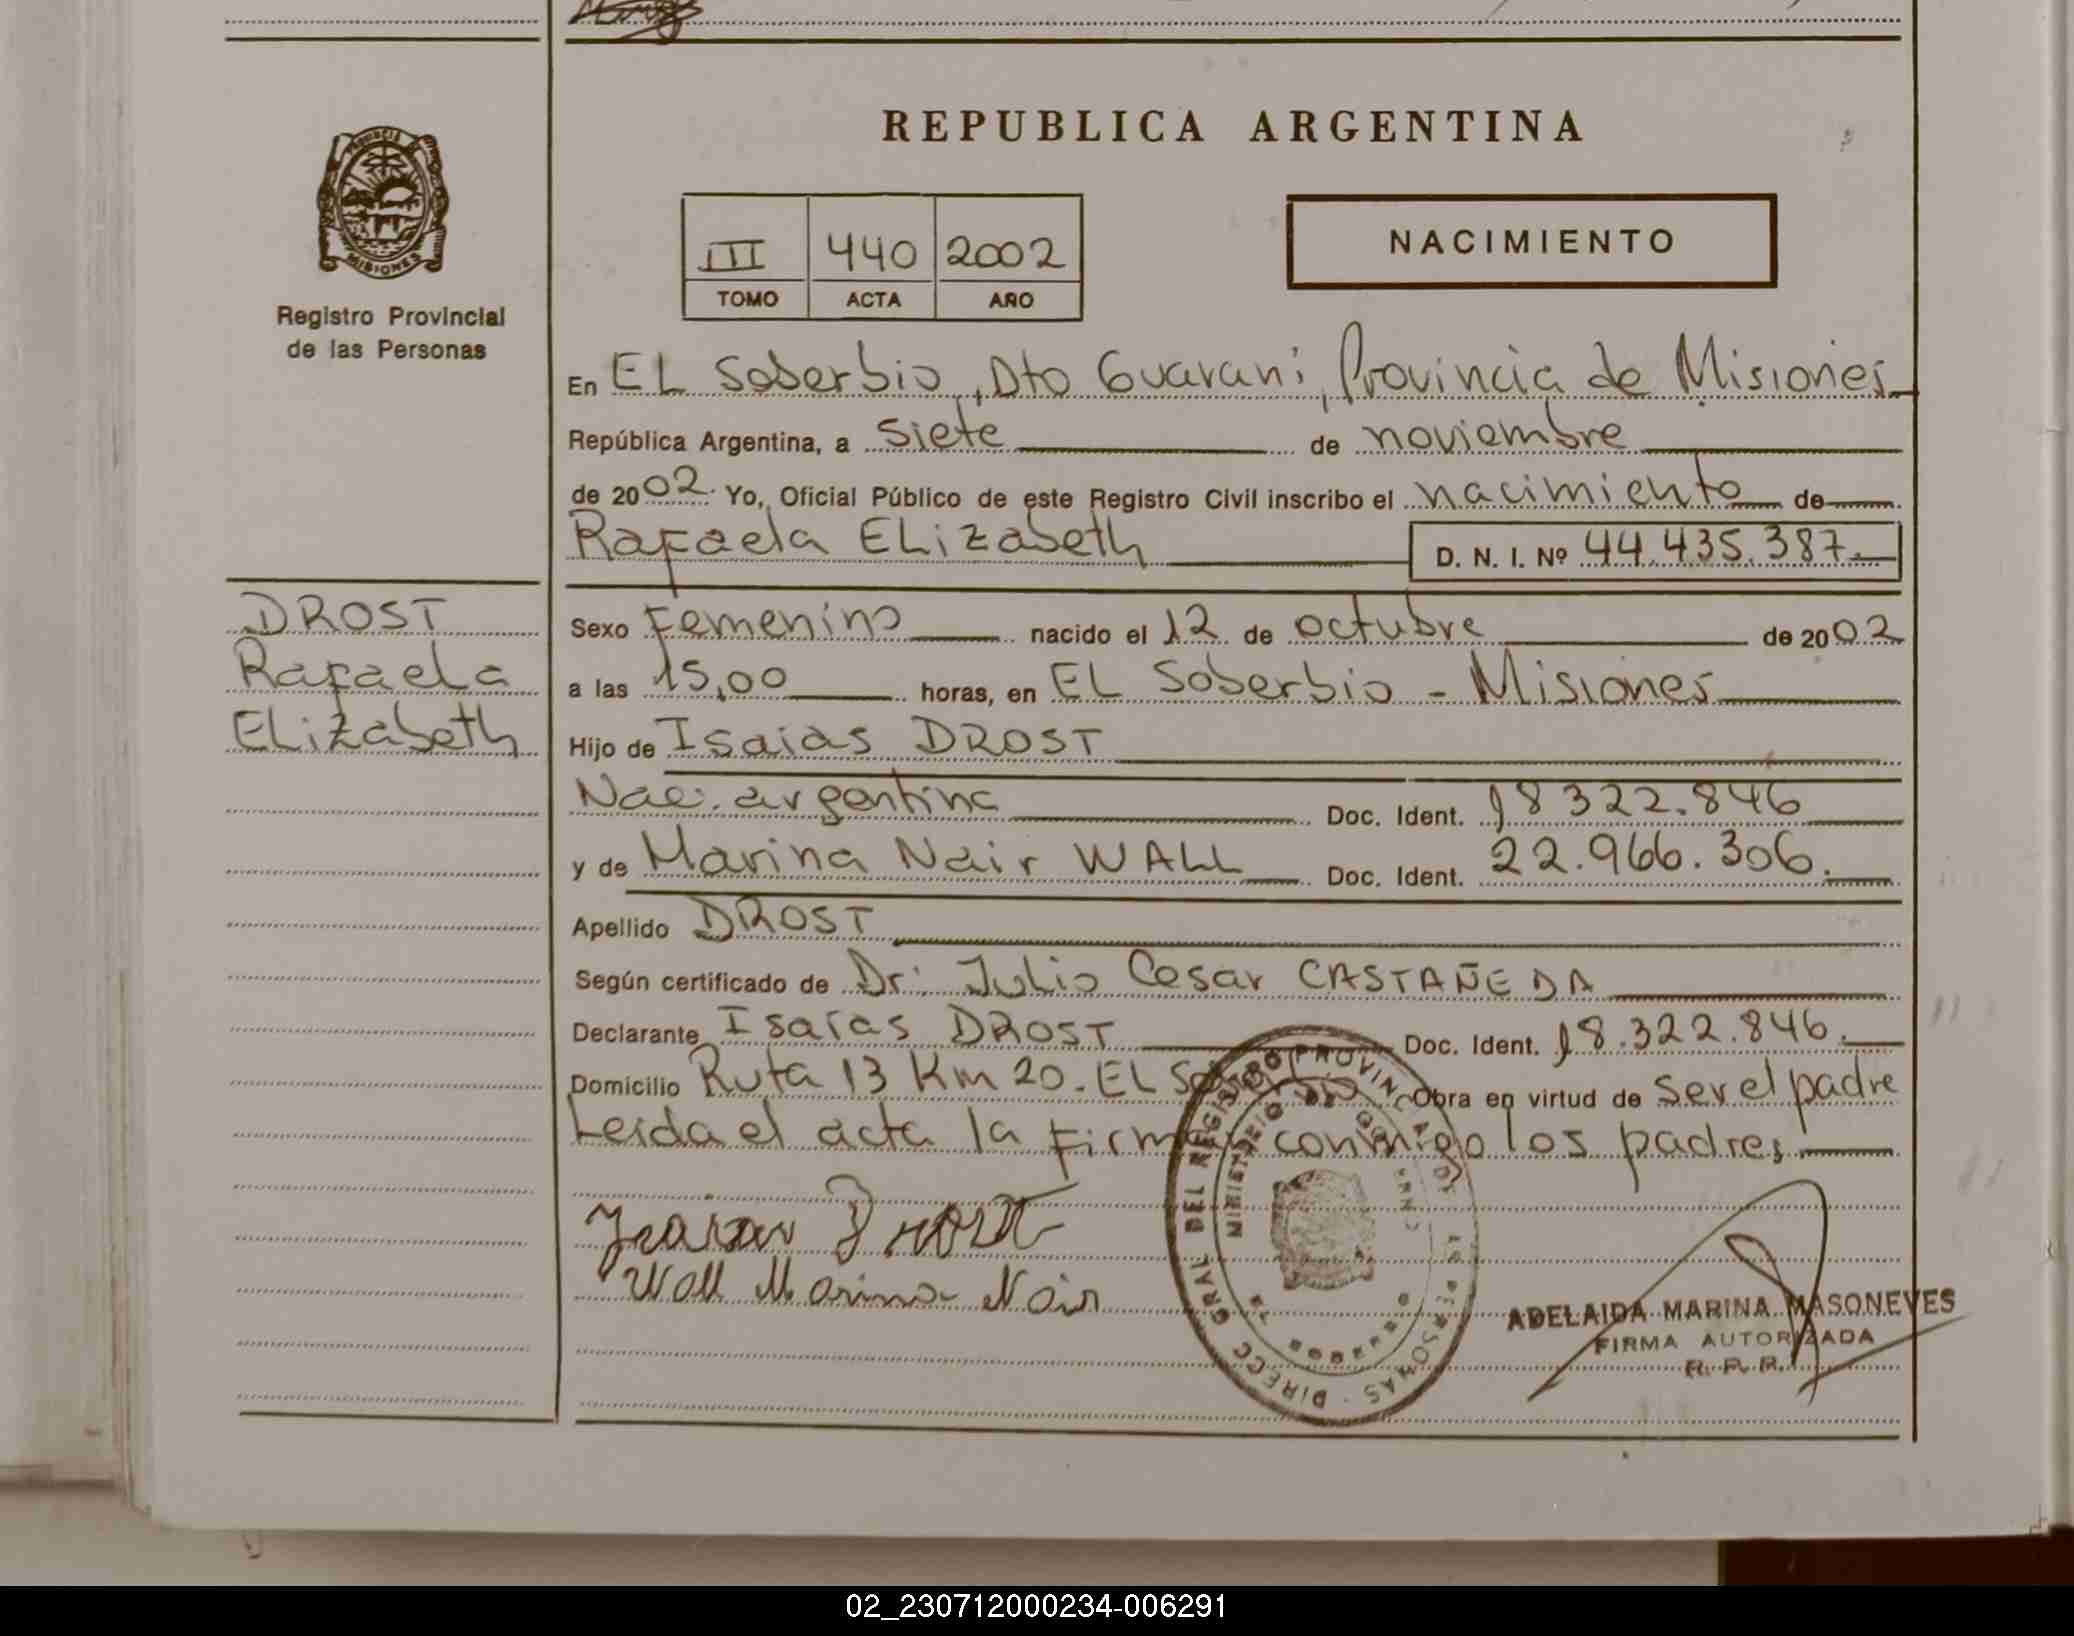 REPUBLICA ARGENTINA
PROVINCIA DE MISIONES
Registro Provincial
de las Personas
III 440 2002
TOMO ACTA AÑO
NACIMIENTO
En EL Soberbio, Dto Guarani, Provincia de Misiones
República Argentina, a siete de noviembre
de 2002. Yo, Oficial Público de este Registro Civil inscribo el nacimiento de
Rafaela ELizabeth D. N. I. Nº 44.435.387.
DROST
Rafaela
ELizabeth
Sexo Femenino nacido el 12 de octubre de 2002
a las 15,00 horas, en EL Soberbio - Misiones
Hijo de Isaias DROST
Nac. argentina Doc. Ident. 18322.846
y de Marina Nair WALL Doc. Ident. 22.966.306.
Apellido DROST
Según certificado de Dr: Julio Cesar CASTAÑEDA
Declarante Isaías DROST Doc. Ident. 18.322.846.
Domicilio Ruta 13 Km 20. EL Soberbio Obra en virtud de ser el padre
Leida el acta la firman conmigo los padres
Isaias Drost
Wall Marina Nair
DIRECC GRAL DEL REGISTRO PROVINCIAL DE LAS PERSONAS
MINISTERIO DE GOBIERNO
ADELAIDA MARINA MASONEVES
FIRMA AUTORIZADA
R. P. P.
02_230712000234-006291